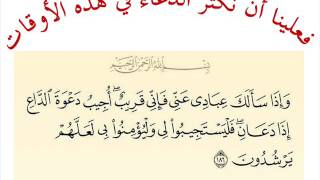 فعلينا أن نكثر الدعاء في هذه الأوقات
بِسْمِ اللَّهِ الرَّحْمَٰنِ الرَّحِيمِ
وَإِذَا سَأَلَكَ عِبَادِي عَنِّي فَإِنِّي قَرِيبٌ ۖ أُجِيبُ دَعْوَةَ الدَّاعِ
إِذَا دَعَانِ ۖ فَلْيَسْتَجِيبُوا لِي وَلْيُؤْمِنُوا بِي لَعَلَّهُمْ
يَرْشُدُونَ ١٨٦